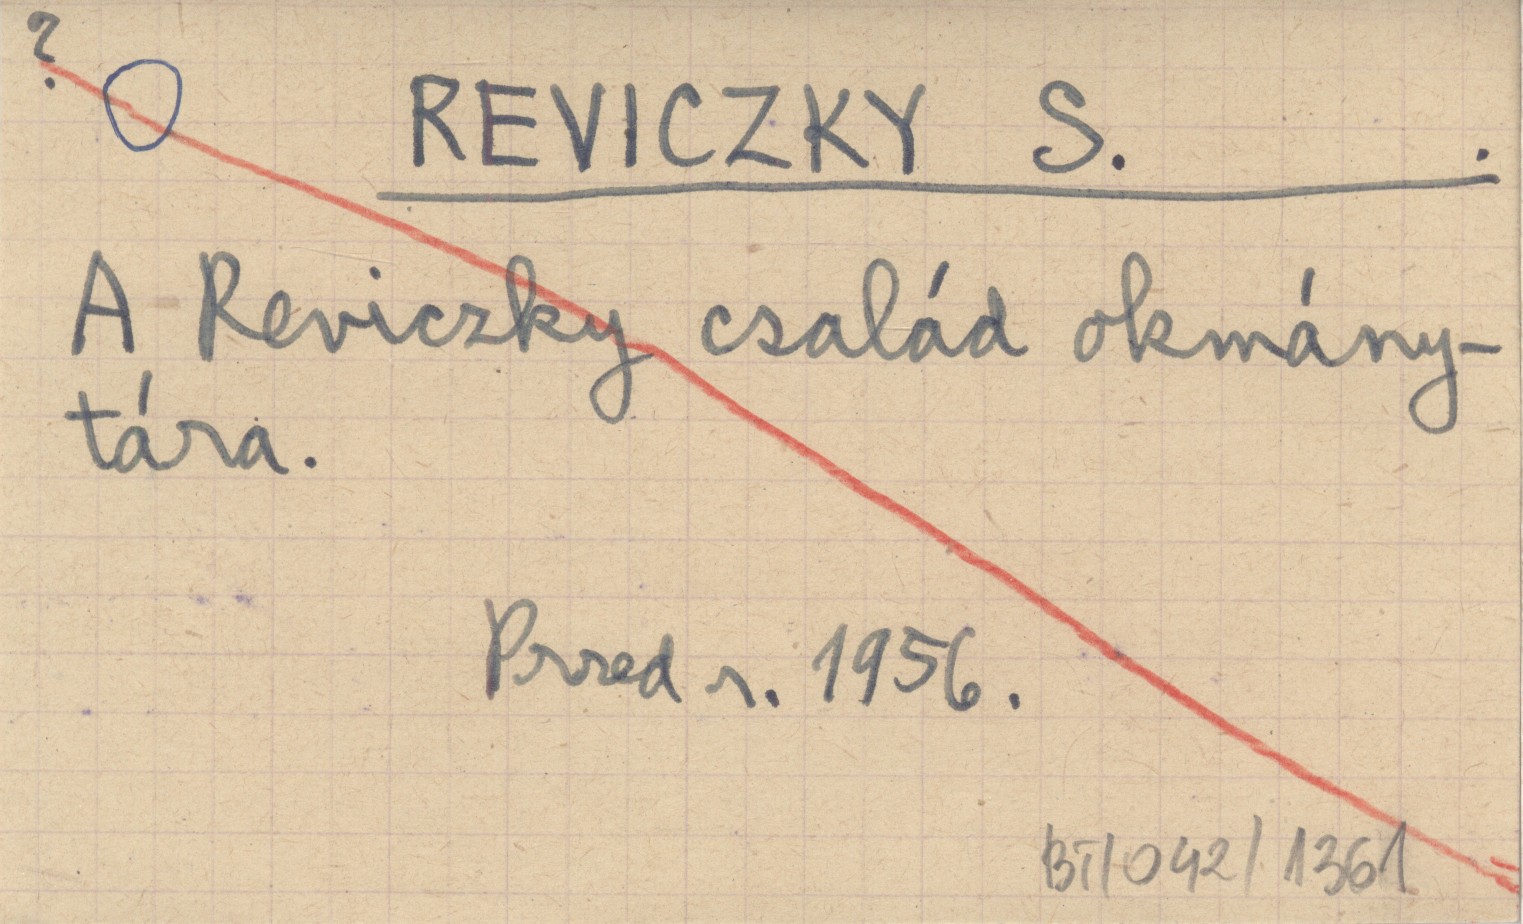 ?
REVICZKY S. .
A Reviczky család okmány-
tára.
Pred r. 1956.
BT/042/1361